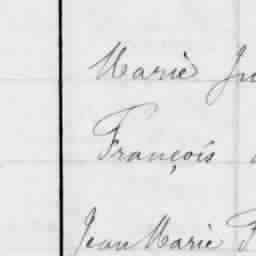 Marie
François
Jean Marie